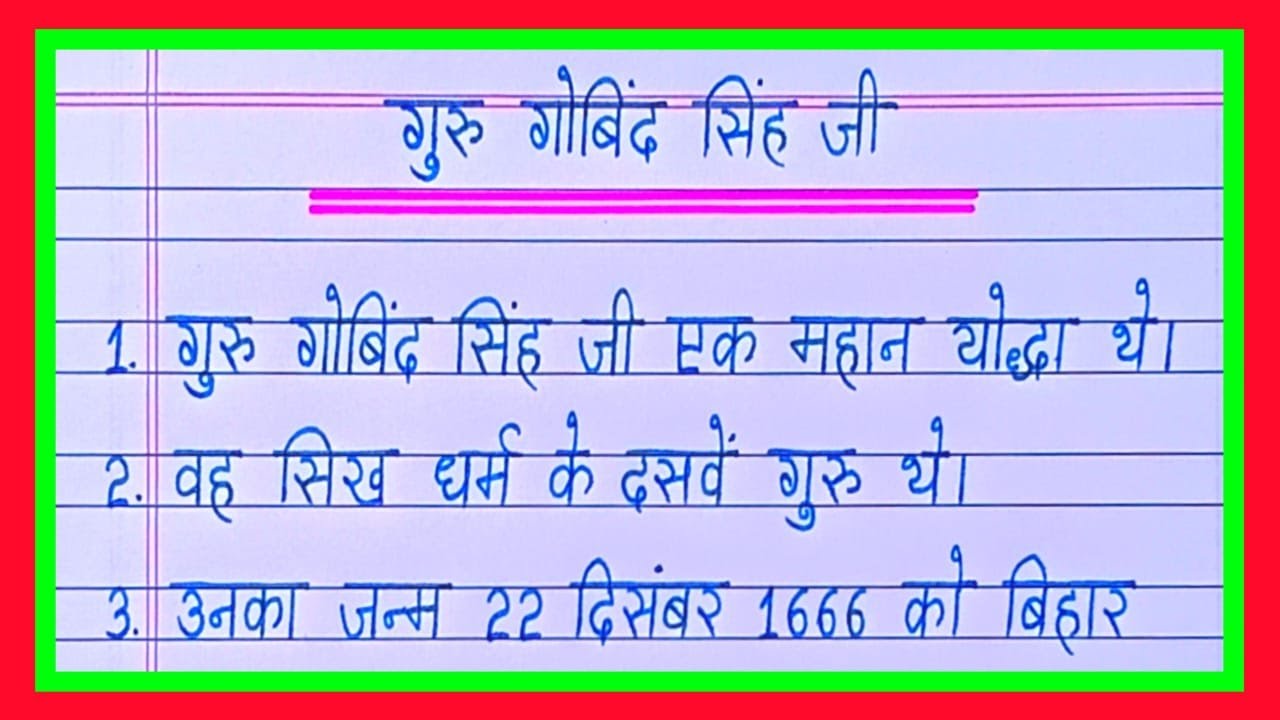 गुरु गोबिंद सिंह जी
1. गुरु गोबिंद सिंह जी एक महान योद्धा थे।
2. वह सिख धर्म के दसवें गुरु थे।
3. उनका जन्म 22 दिसंबर 1666 को बिहार